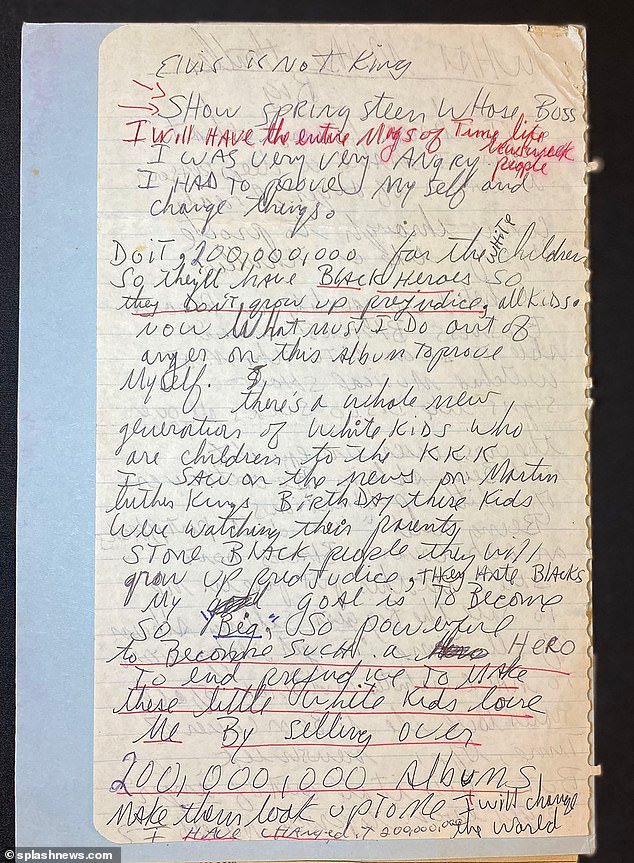 Elvis is Not King
SHOW Springsteen WHOSE BOSS
I WILL HAVE the entire Mags of Time life Newsweek people
I WAS very very Angry
I HAD TO prove My self and
change things.
DO it, 200,000,000 for the WHITE children
So they'll have BLACK Heroes so
they Don't grow up prejudice, all KIDS.
now What must I Do out of
anger on this Album To prove
Myself.
there's a whole new
generation of White KIDS who
are children to the KKK
I SAW on the news on Martin
luther Kings BIRTHDAY these Kids
were watching their parents
STONE BLACK people they will
grow up predjudice, they Hate Blacks
My goal is To Become
SO "Big", So powerful
to Become SUCH a HERO
To end prejudice To MAKE
these little white Kids love
Me By selling over
200,000,000 AlbumS
Make them look up To me I will change
the world
I HAVE changed it 200,000,000
© splashnews.com